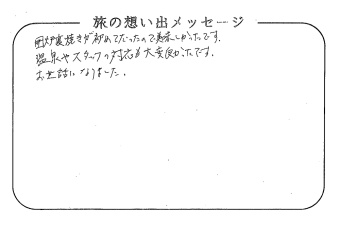 旅の想い出メッセージ
囲炉裏焼きが初めてだったので美味しかったです。
温泉やスタッフの対応も大変良かったです。
お世話になりました。